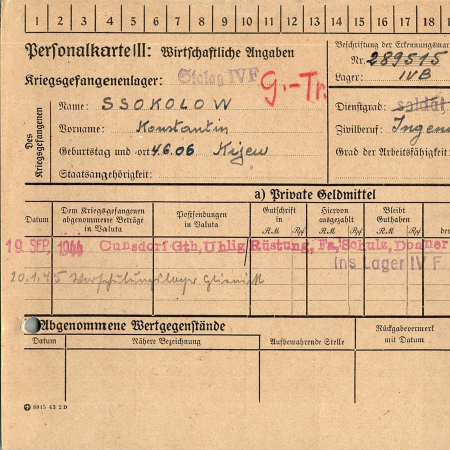 1 2 3 4 5 6 7 8 9 10 11 12 13 14 15 16 17 18
Personalkarte II: Wirtschaftliche Angaben
Kriegsgefangenenlager: Stalag IV F
G.-Tr.
Beschriftung der Erkennungsmar
Nr. 289515
Lager: IV B
Des Kriegsgefangenen
Name: SSOKOLOW
Vorname: Konstantin
Geburtstag und -ort 4.6.06 Kijew
Staatsangehörigkeit:
Dienstgrad: Soldat
Zivilberuf: Ingeni
Grad der Arbeitsfähigkeit:
a) Private Geldmittel
Datum
Dem Kriegsgefangenen abgenommene Beträge in Valuta
Postsendungen in Valuta
Gutschrift in RM Rpf
Hiervon ausgezahlt RM Rpf
Bleibt Guthaben RM Rpf
der
19. SEP. 1944 Cunsdorf Gth, Uhlig Rüstung, Fa, Schulz,
ins Lager IV F
20.1.45 Lager
Abgenommene Wertgegenstände
Datum
Nähere Bezeichnung
Aufbewahrende Stelle
Rückgabevermerk mit Datum
8845 43 2 D